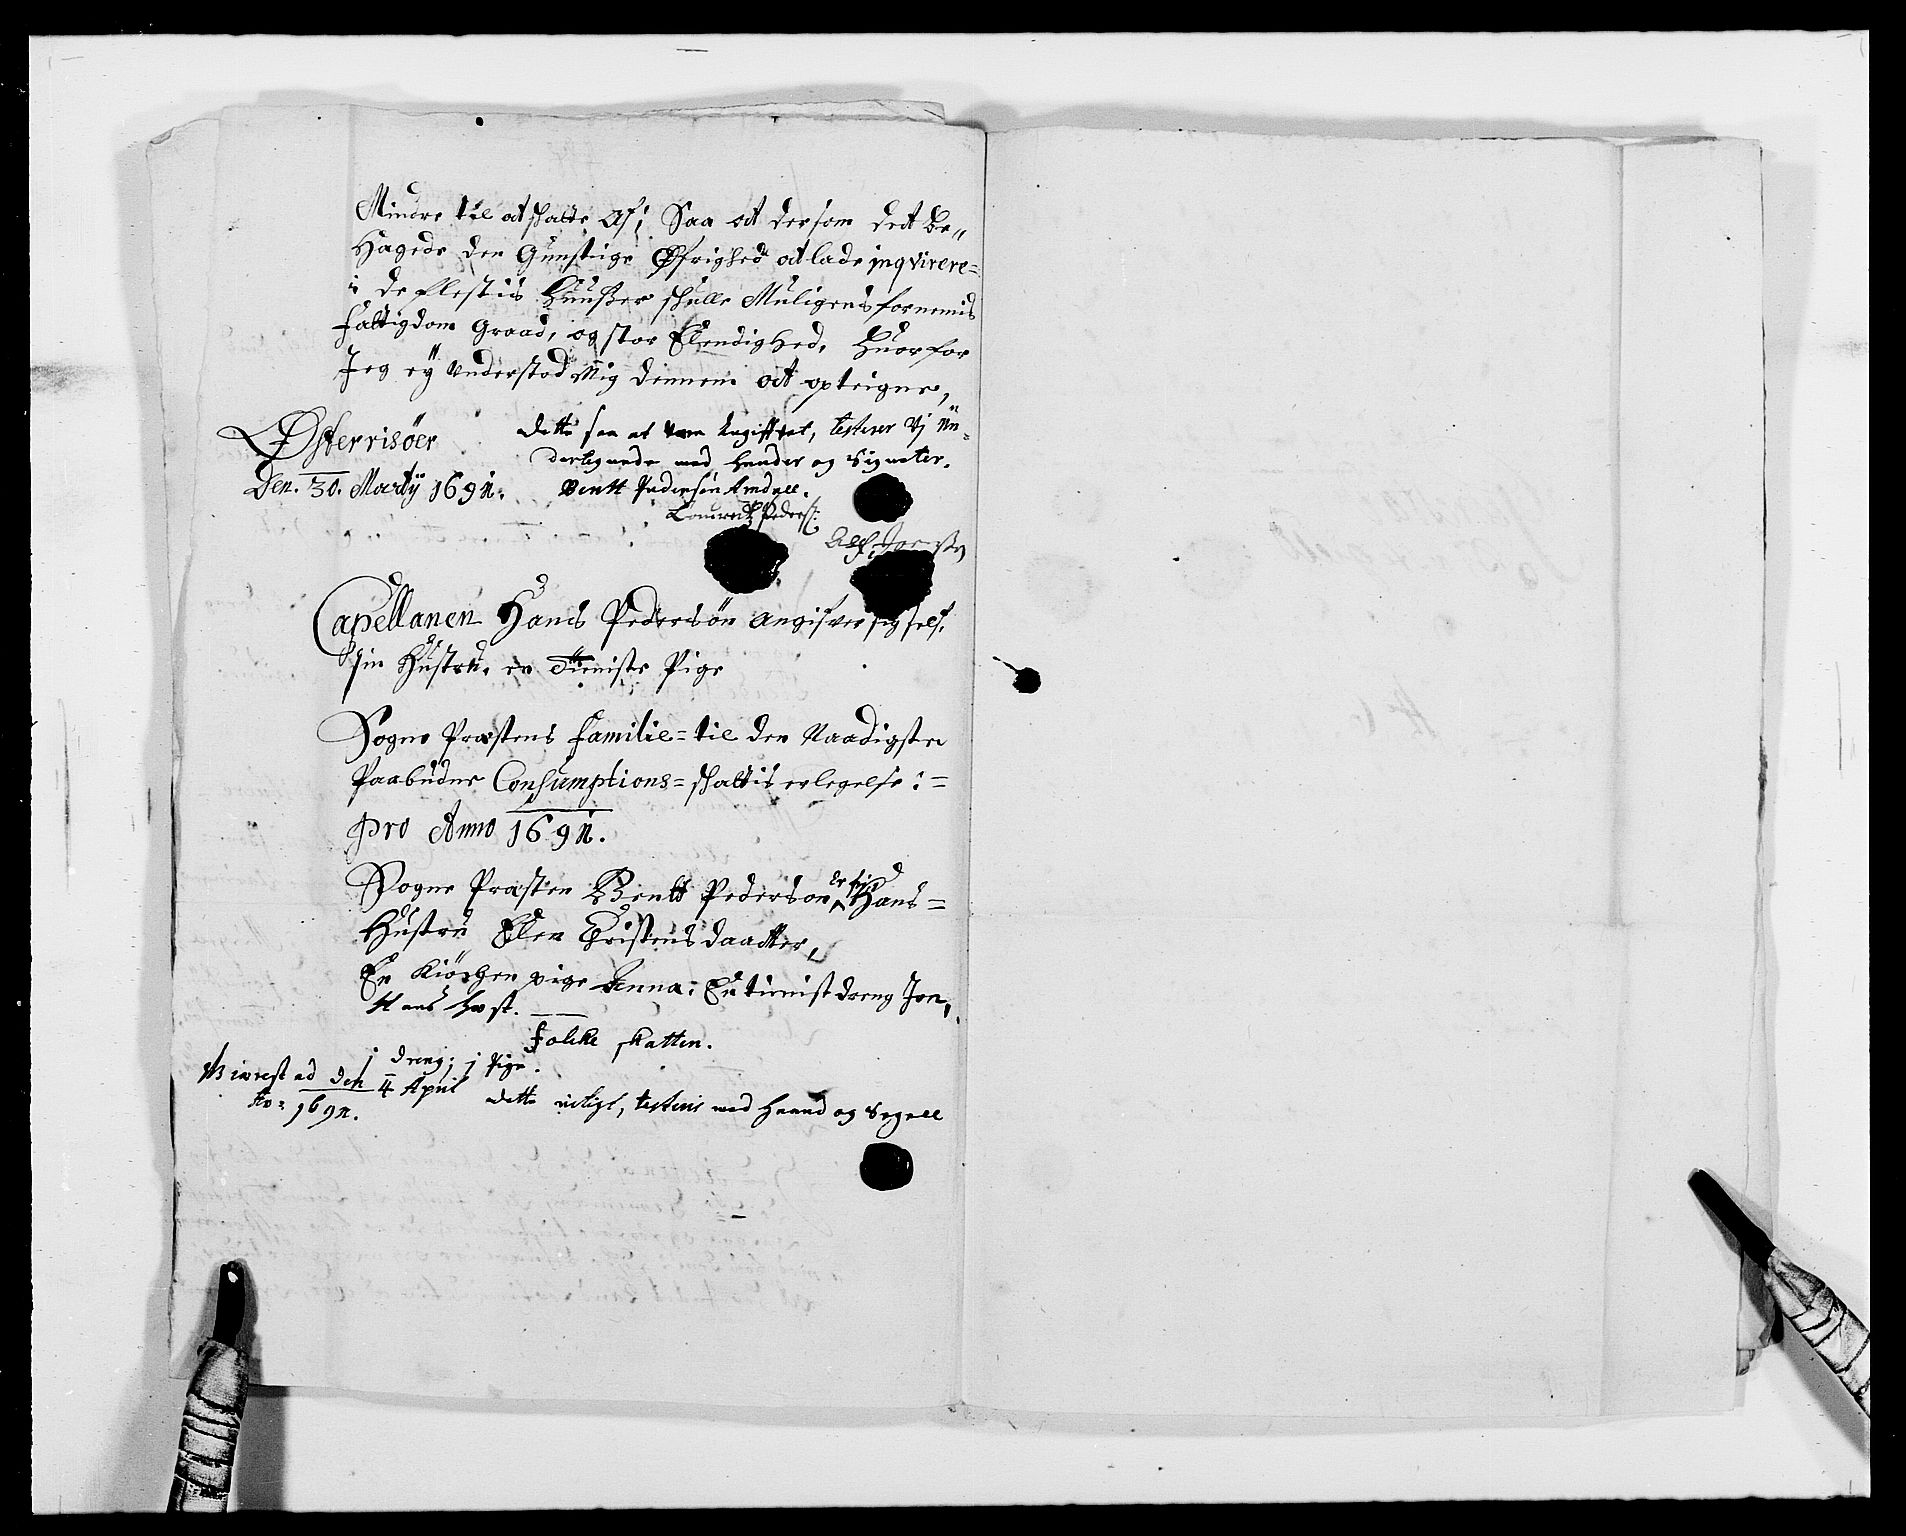 Mindre til at skatte Af; Saa at dersom det be„
hagede den Gunstige Øfrighed at lade inqvirere=
i de flestis Huußer skulle Muligens fornemis
fattigdom Graad, og stor Elendighed, Huorfor
Jeg ey understod Mig dennem at opteigne,
Østerrisöer
Den. 30. Martij 1691.
dette saa at vere Angifvet, testerer Vj Un=
dertegnede med hender og Signeter.
Bentt Pedersön Amdall.
Lauredtz Peders:
Capellanen Hans Pedersön Angifver sig self,
sin Hustru, en Tieniste Pige
Sogne Præstens familie= til den Naadigste
Paabudne Consumptions= skattis erlegelse :=
pro Anno 1691.
Sogne Præsten Bentt Pedersøn er fri Hans=
Hustru Elen Christens daatter,
En Kiöchen pige Anna; En tienist dreng Jon,
Hans Hæst.
Folcke skatten.
1 dreng; 1 Pige.
den 4 April
Ao= 1691.
dette rictigt, testeris med haand og Segell